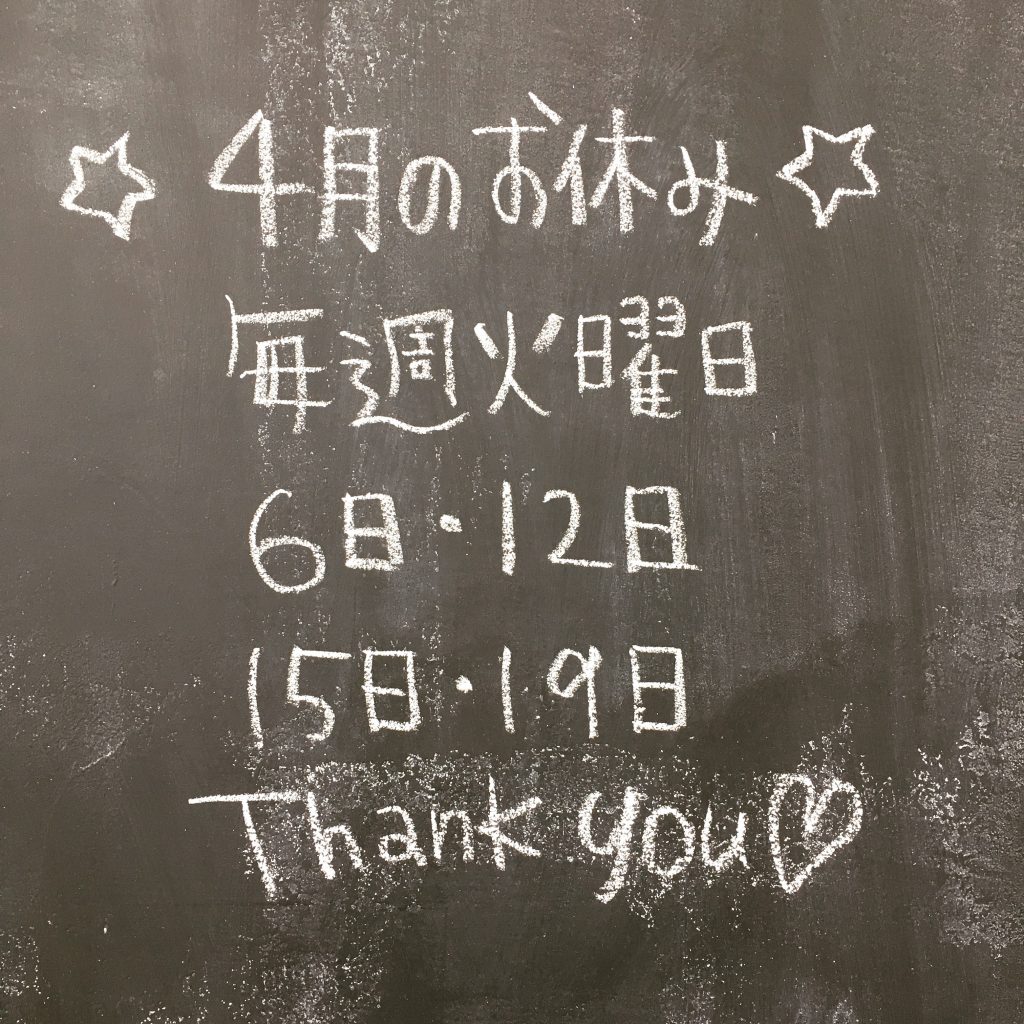 ☆4月のお休み☆
毎週火曜日
6日・12日
15日・19日
Thank you♡